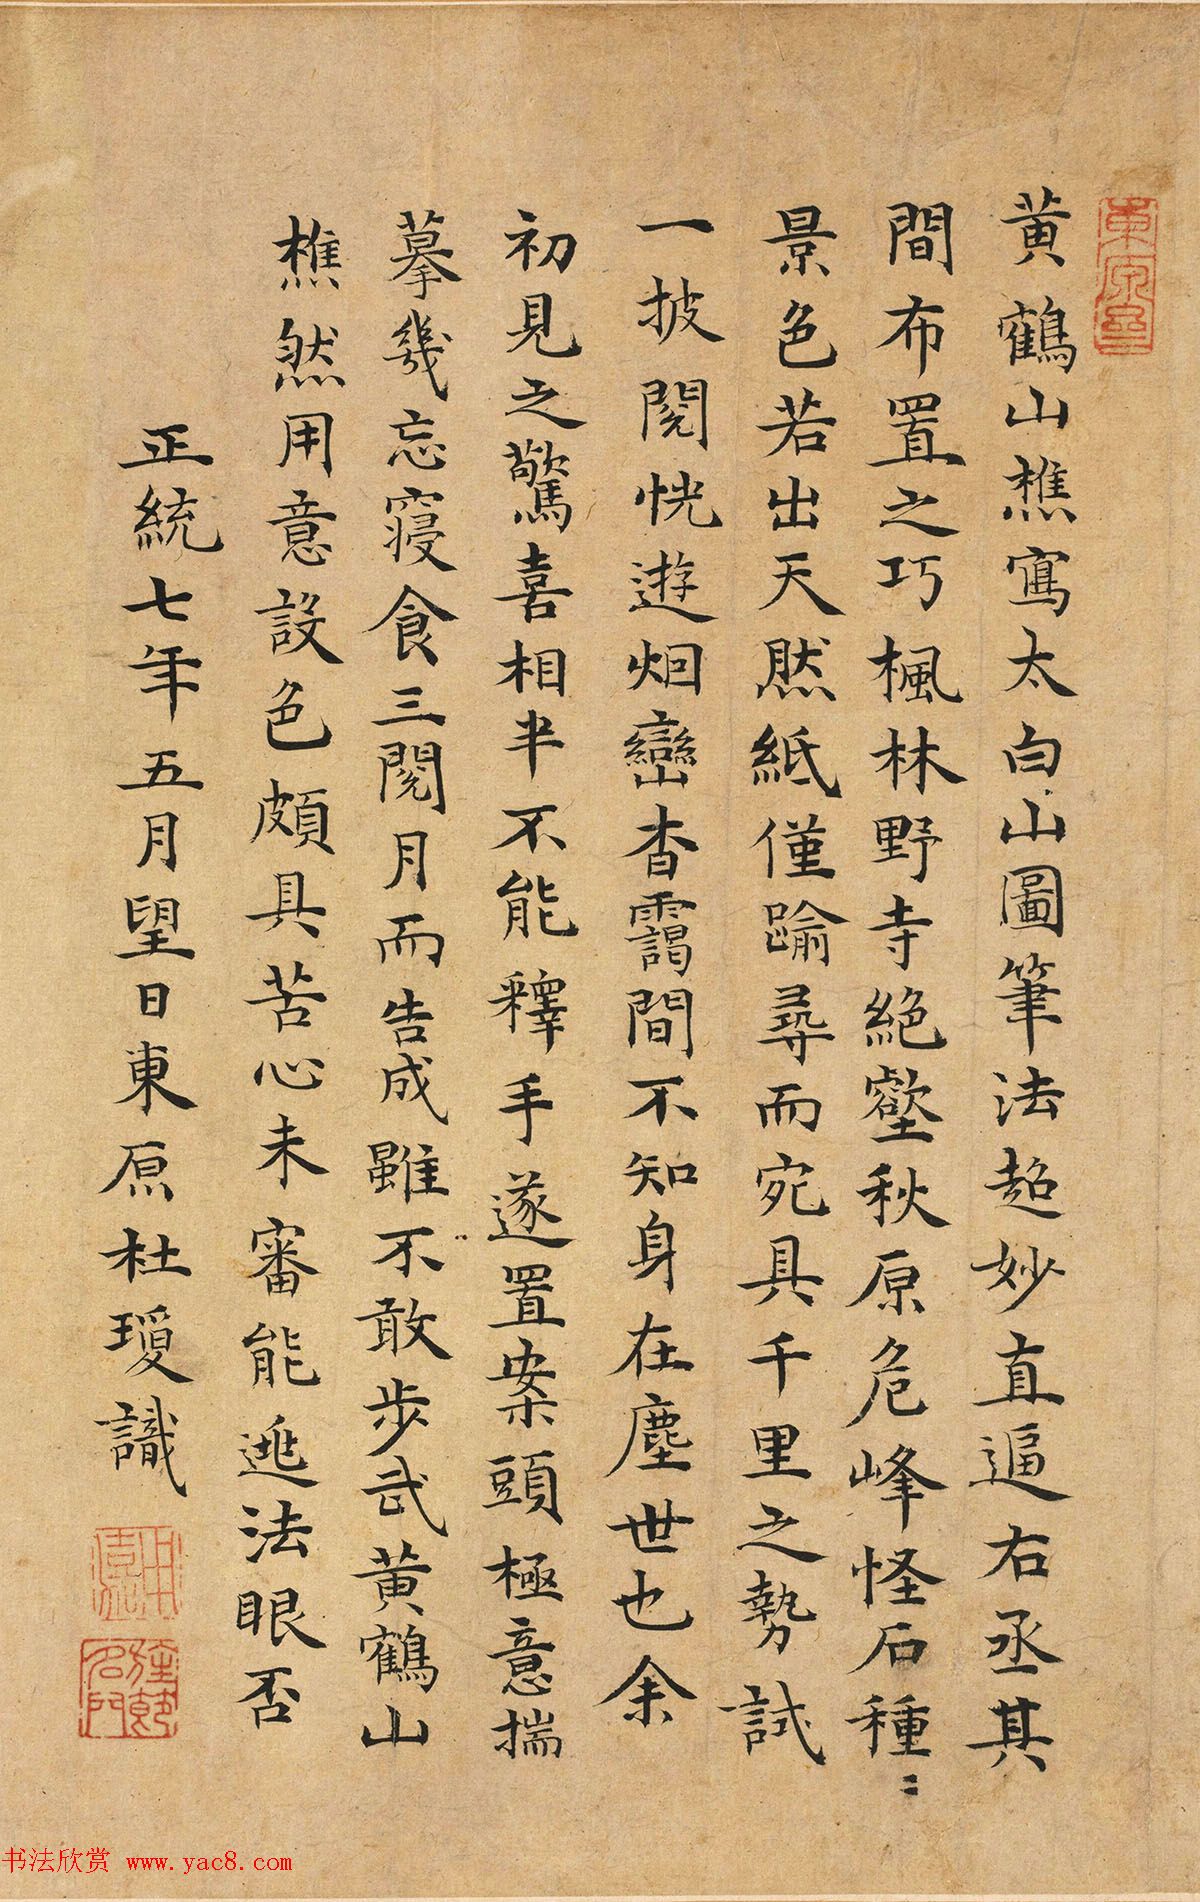 黄鶴山樵寫太白山圖筆法超妙直逼右丞其
間布置之巧楓林野寺絕壑秋原危峰怪石種〻
景色若出天然紙僅踰尋而宛具千里之勢試
一披閱恍遊烟巒杳靄間不知身在塵世也余
初見之驚喜相半不能釋手遂置案頭極意揣
摹幾忘寢食三閱月而告成雖不敢步武黄鶴山
樵然用意設色頗具苦心未審能逃法眼否
正統七年五月望日東原杜瓊識
書法欣赏 www.yac8.com